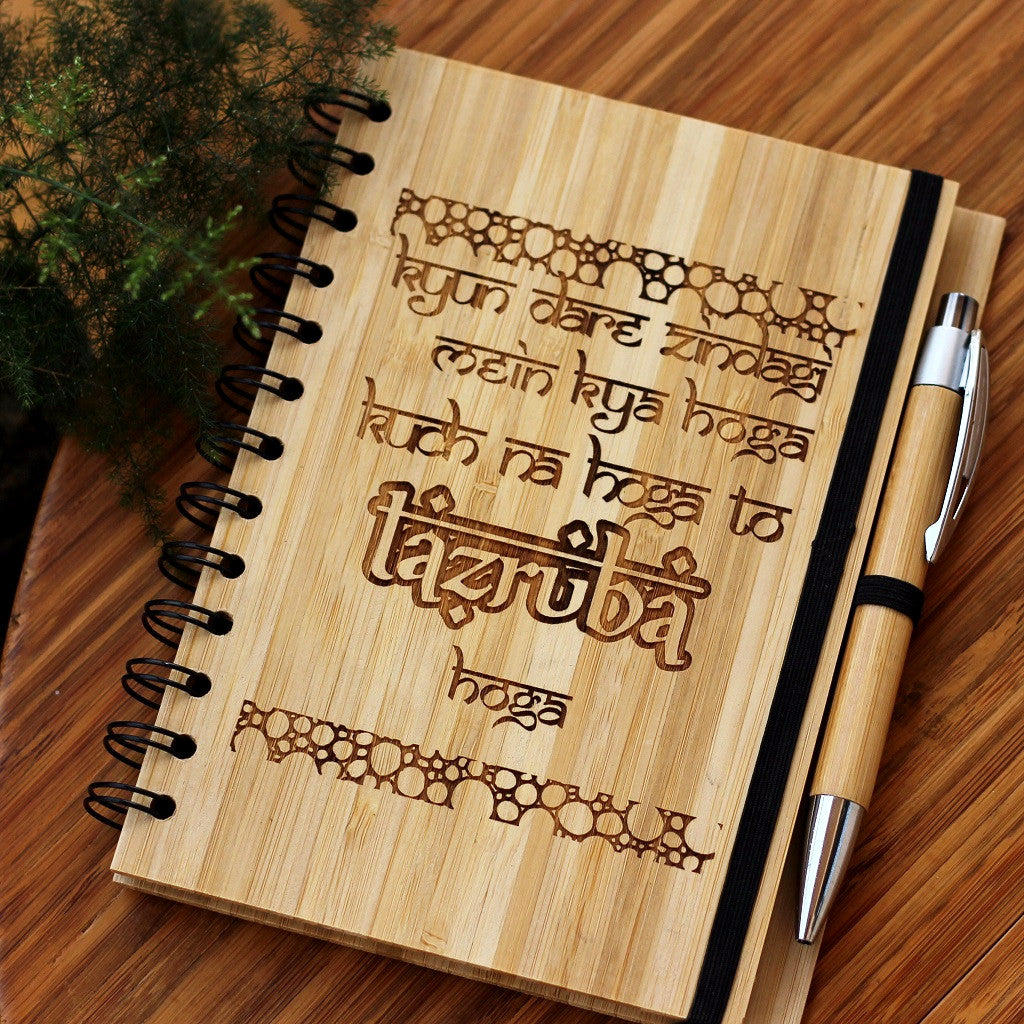 kyun dare zindagi
mein kya hoga
kuch na hoga to
tazruba
hoga